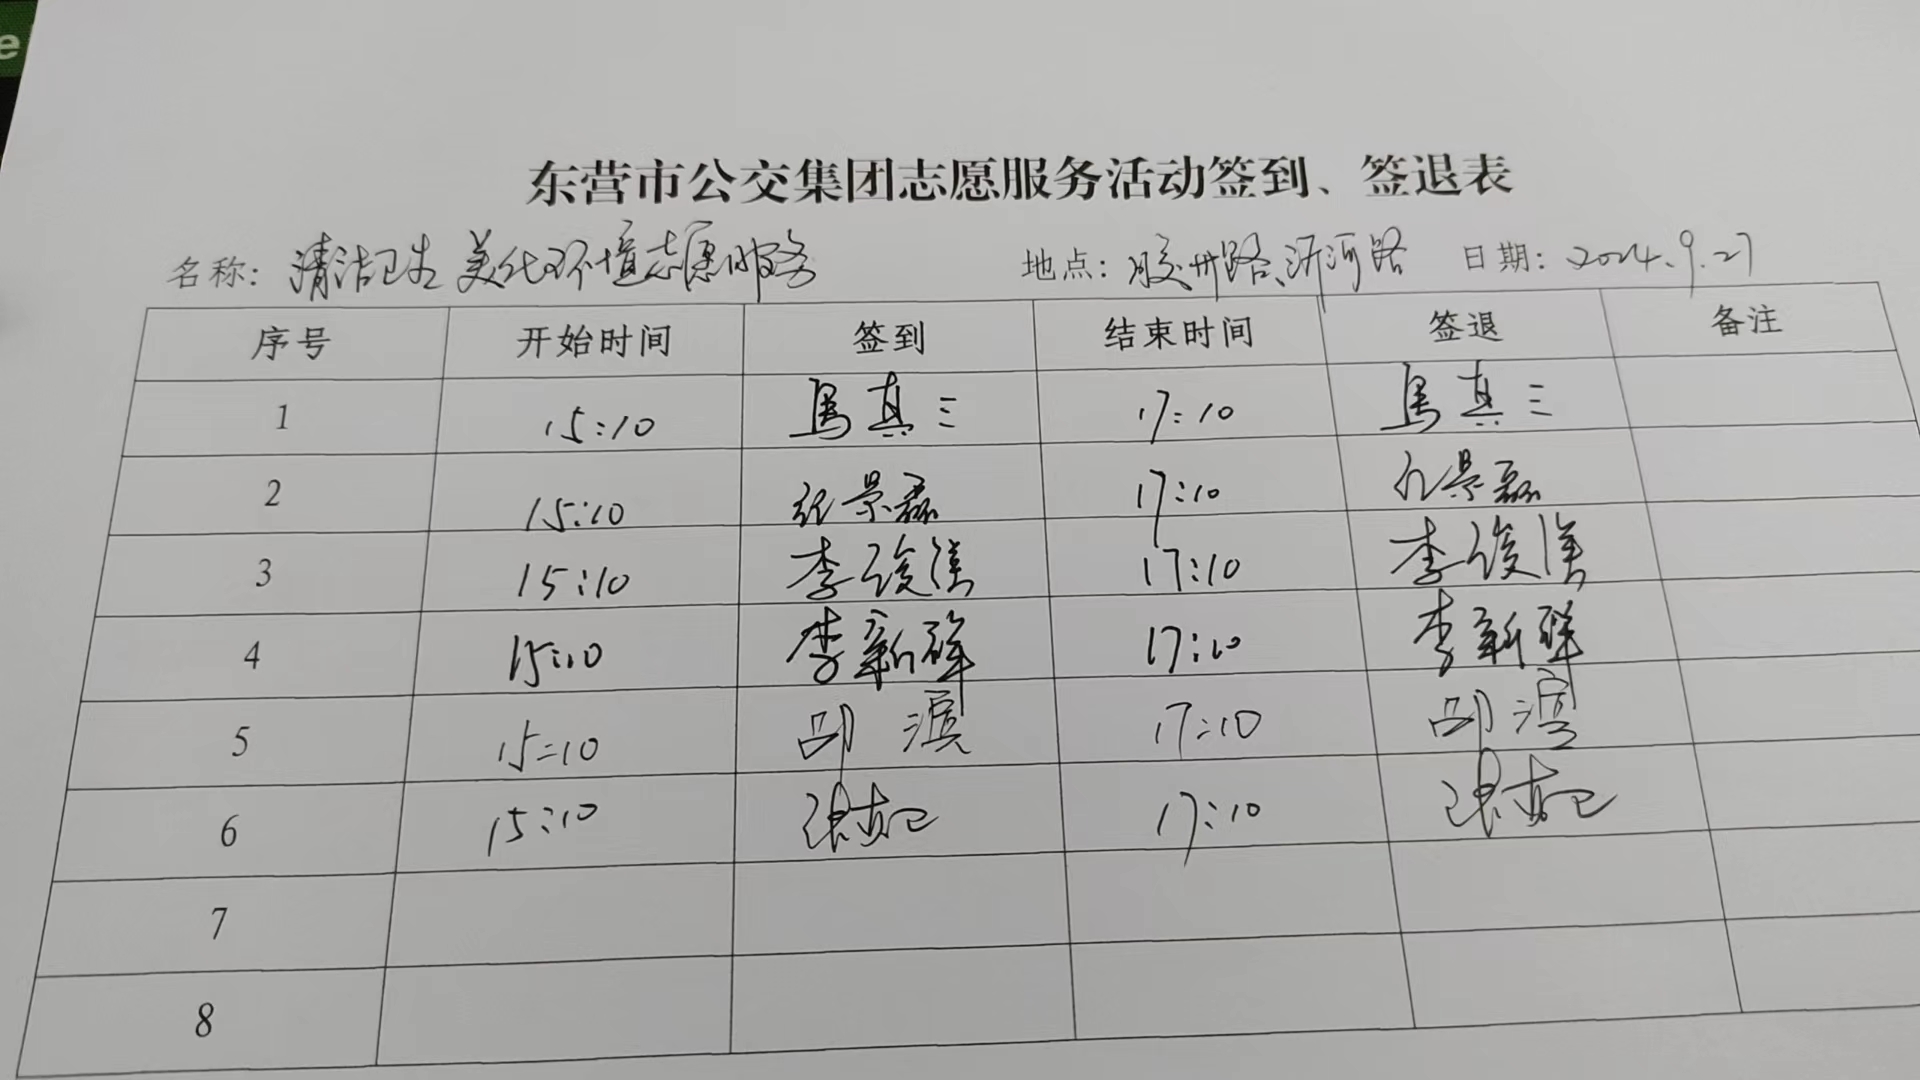 e
东营市公交集团志愿服务活动签到、签退表
名称: 清洁卫生 美化环境志愿服务 地点: 胶州路、沂河路 日期: 2024.9.27
序号 开始时间 签到 结束时间 签退 备注
1 15:10 真三 17:10 真三
2 15:10 景磊 17:10 景磊
3 15:10 李俊 17:10 李俊
4 15:10 李新 17:10 李新
5 15:10 邵滨 17:10 邵滨
6 15:10 张 17:10 张
7
8